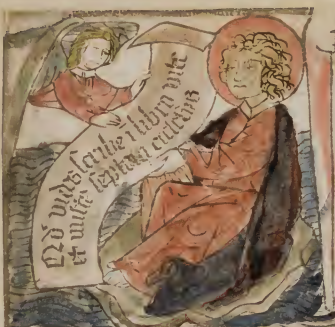 Qd vides scribe i libro vite
et mitte septem ecclesiis